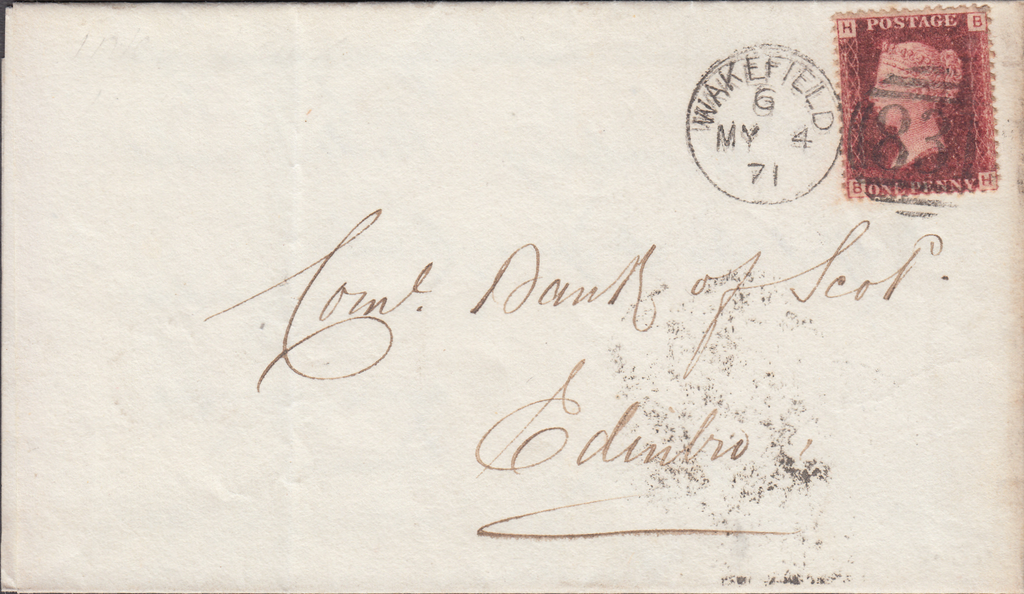 H POSTAGE B
WAKEFIELD
G
MY 4
71
B ONE PENNY H
Coml. Bank of Scot.
Edinbro